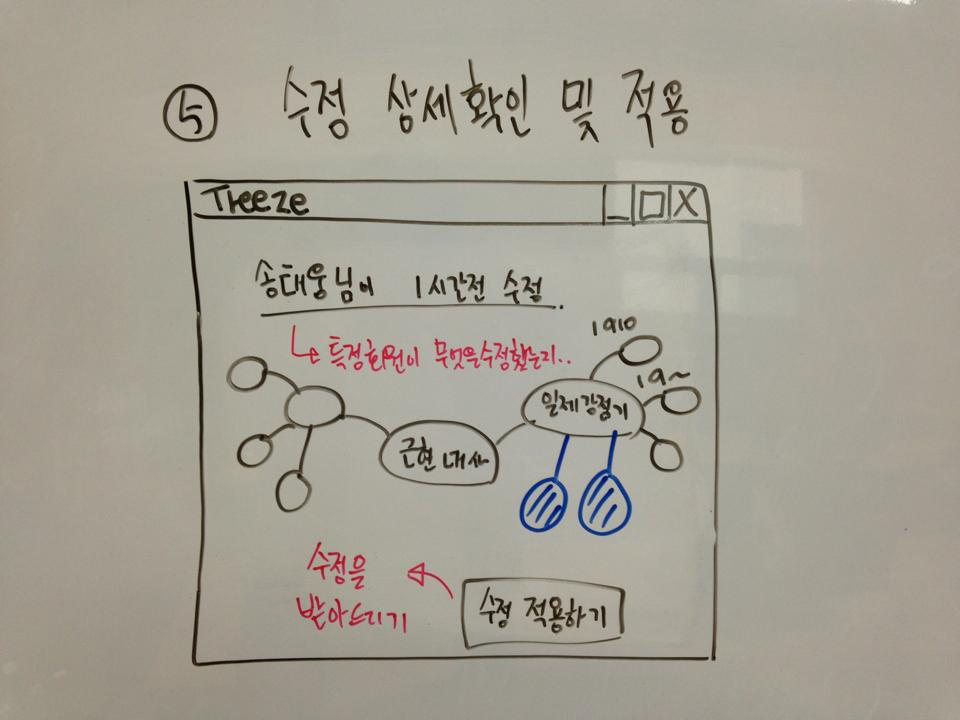 ⑤ 수정 상세확인 및 적용
Treeze
_ □ X
송태웅님이 1시간전 수정
↳ 특정회원이 무엇을수정했는지..
1910
19~
일제강점기
근현대사
수정을
받아드리기
수정 적용하기